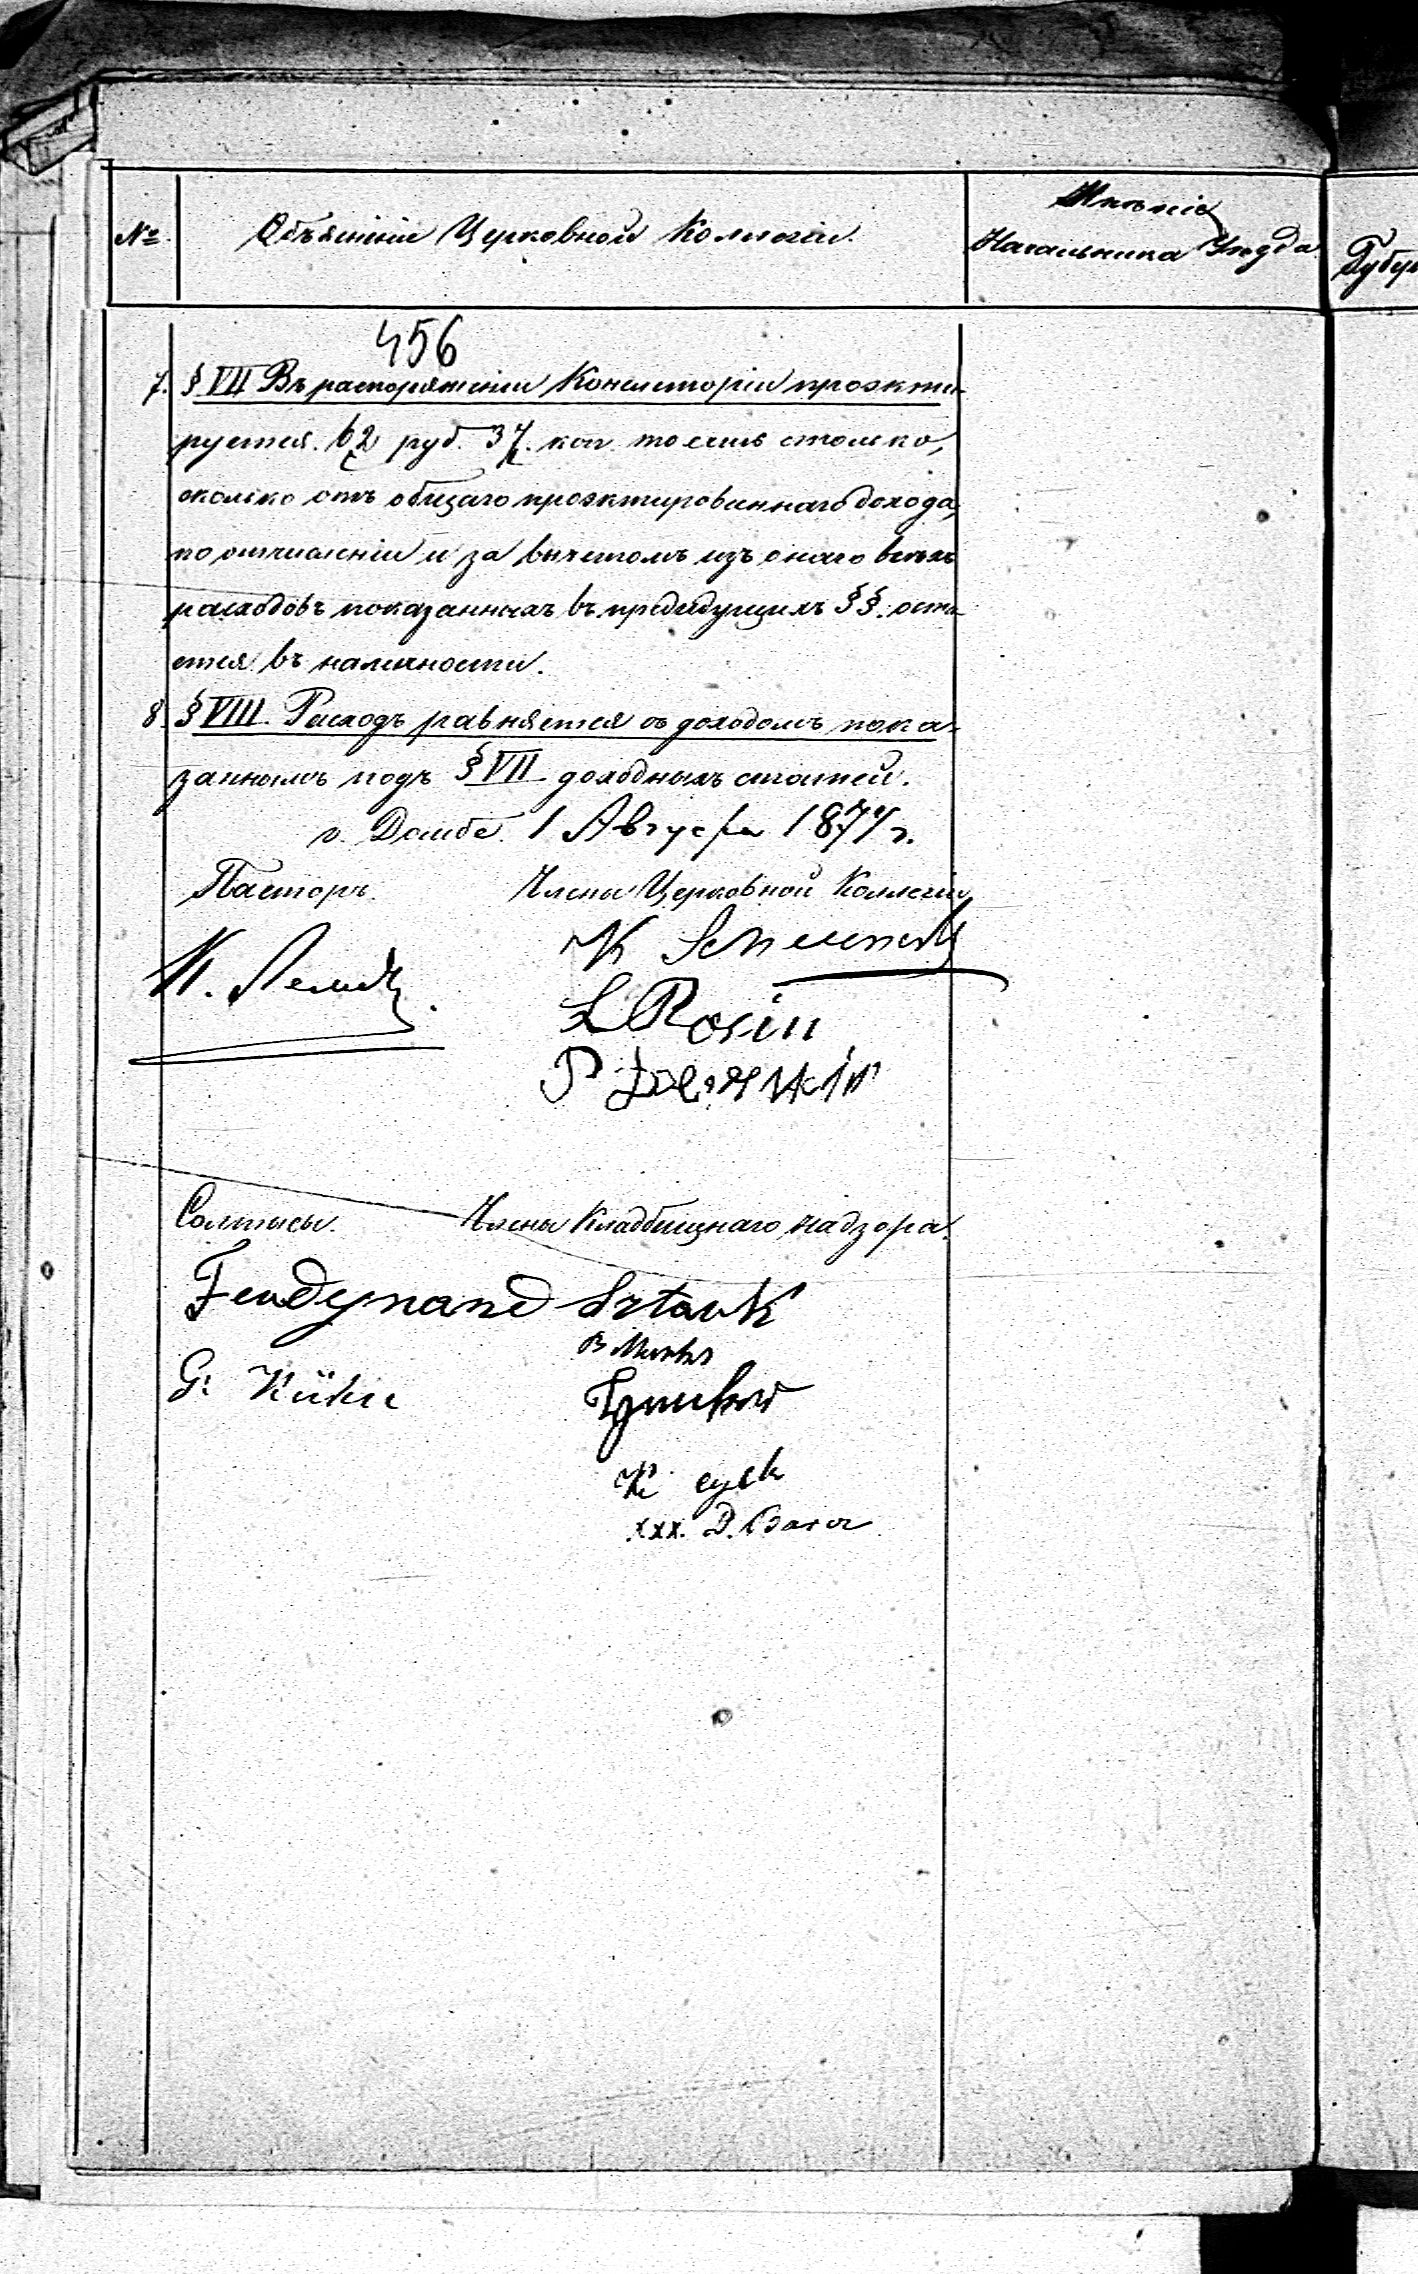 № Объясненія Церковной Коллегіи. Мнѣніе
Начальника Уѣзда Губер
456
7. § VII Въ распоряженіи Консисторіи проэкти-
руется. 62 руб. 37. коп. то есть столько,
сколько отъ общаго проэктированнаго дохода,
по отчисленіи и за вычетомъ изъ онаго всѣхъ
расходовъ показанныхъ въ предъидущихъ §§. оста
ется въ наличности.
8. § VIII. Расходъ равняется съ доходомъ пока-
заннымъ подъ § VII доходныхъ статей.
г. Домбе. 1 Августа 1877 г.
Пасторъ. Члены Церковной Коллегіи
K
L Rosin
P
Солтысы. Члены Кладбищнаго надзора.
Ferdynand Sztark
G. Kühn
K
xxx. D.